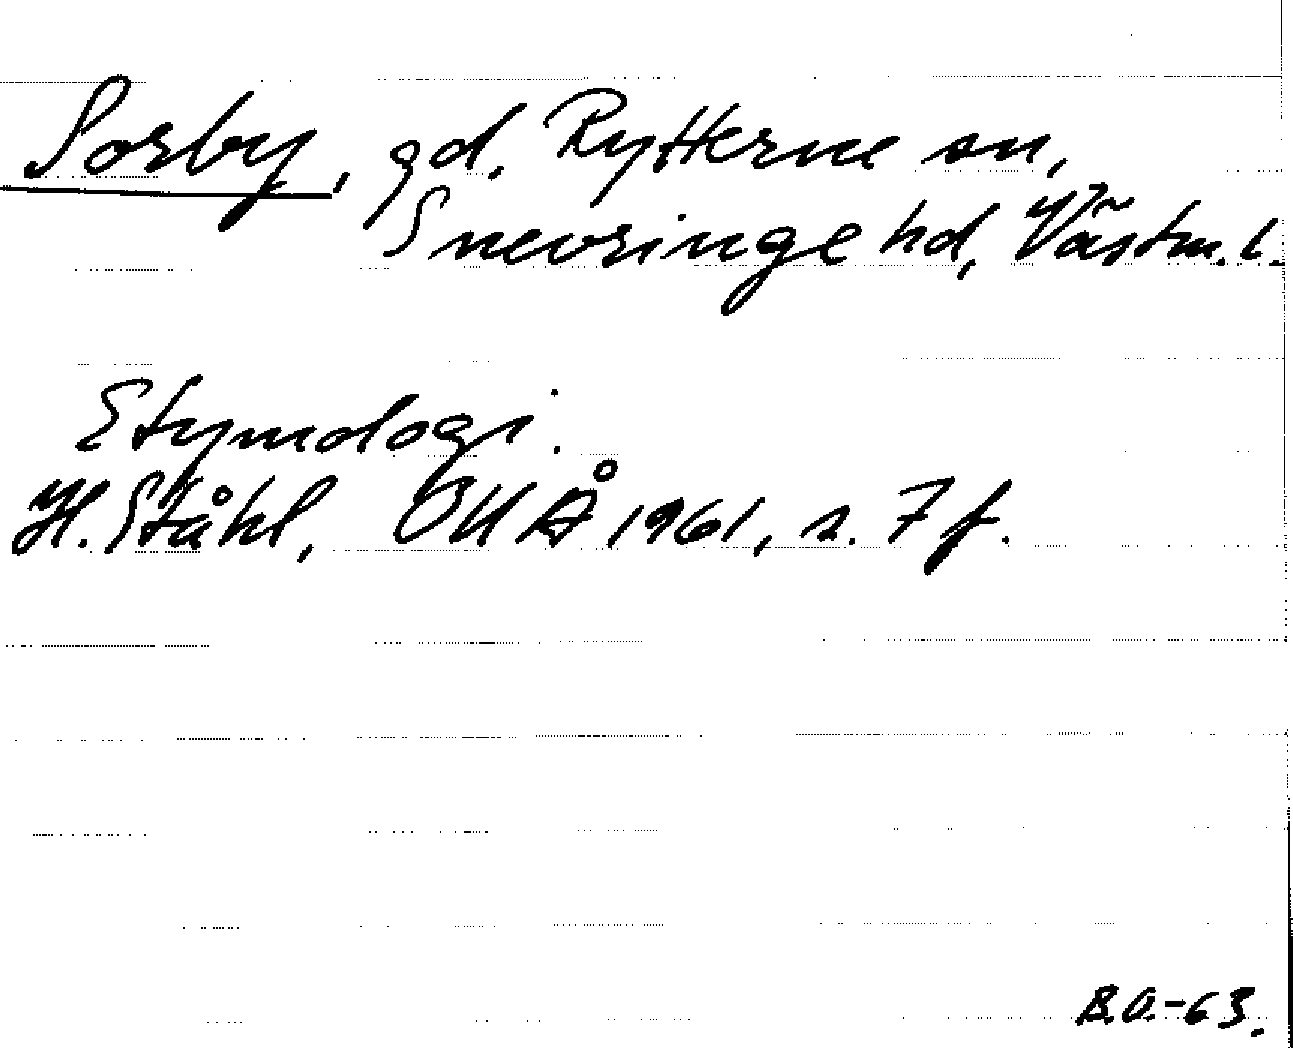 Sorby, gd. Rytterne sn,
Snevringe hd, Västm. l.
Etymologi.
H. Ståhl, OUÅ 1961, s. 7 f.
B.O.-63.